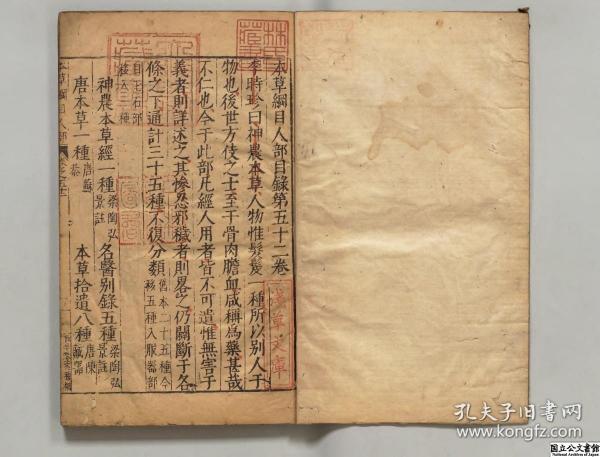 本草綱目人部目錄第五十二卷
李時珍曰神農本草人物惟髮髲一種所以别人于
物也後世方伎之士至于骨肉膽血咸稱爲藥甚哉
不仁也今于此部凡經人用者皆不可遺惟無害于
義者則詳述之其慘忍邪穢者則畧之仍闢斷于各
條之下通計三十五種不復分類舊本二十五種今
移五種入服器部
自玉石部
移入三種
神農本草經一種梁陶弘
景註
名醫別錄五種梁陶弘
景註
唐本草一種唐蘇
恭
本草拾遺八種唐陳
藏器
本草綱目人部
孔夫子旧书网
www.kongfz.com
国立公文書館
National Archives of Japan